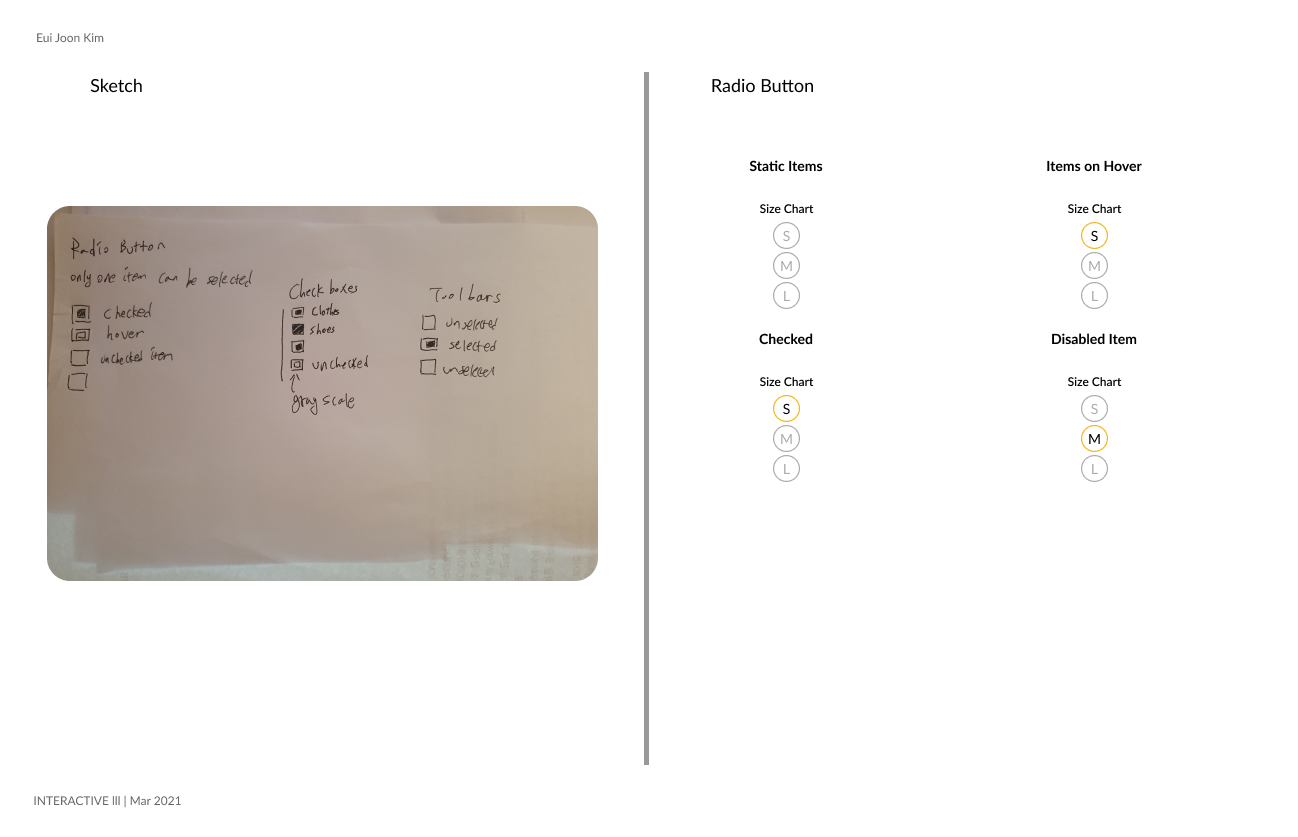 Eui Joon Kim
Sketch
Radio Button
only one item can be selected
checked
hover
unchecked item
Check boxes
Clothes
shoes
unchecked
gray scale
Tool bars
unselected
selected
unselected
Radio Button
Static Items
Size Chart
S
M
L
Items on Hover
Size Chart
S
M
L
Checked
Size Chart
S
M
L
Disabled Item
Size Chart
S
M
L
INTERACTIVE III | Mar 2021